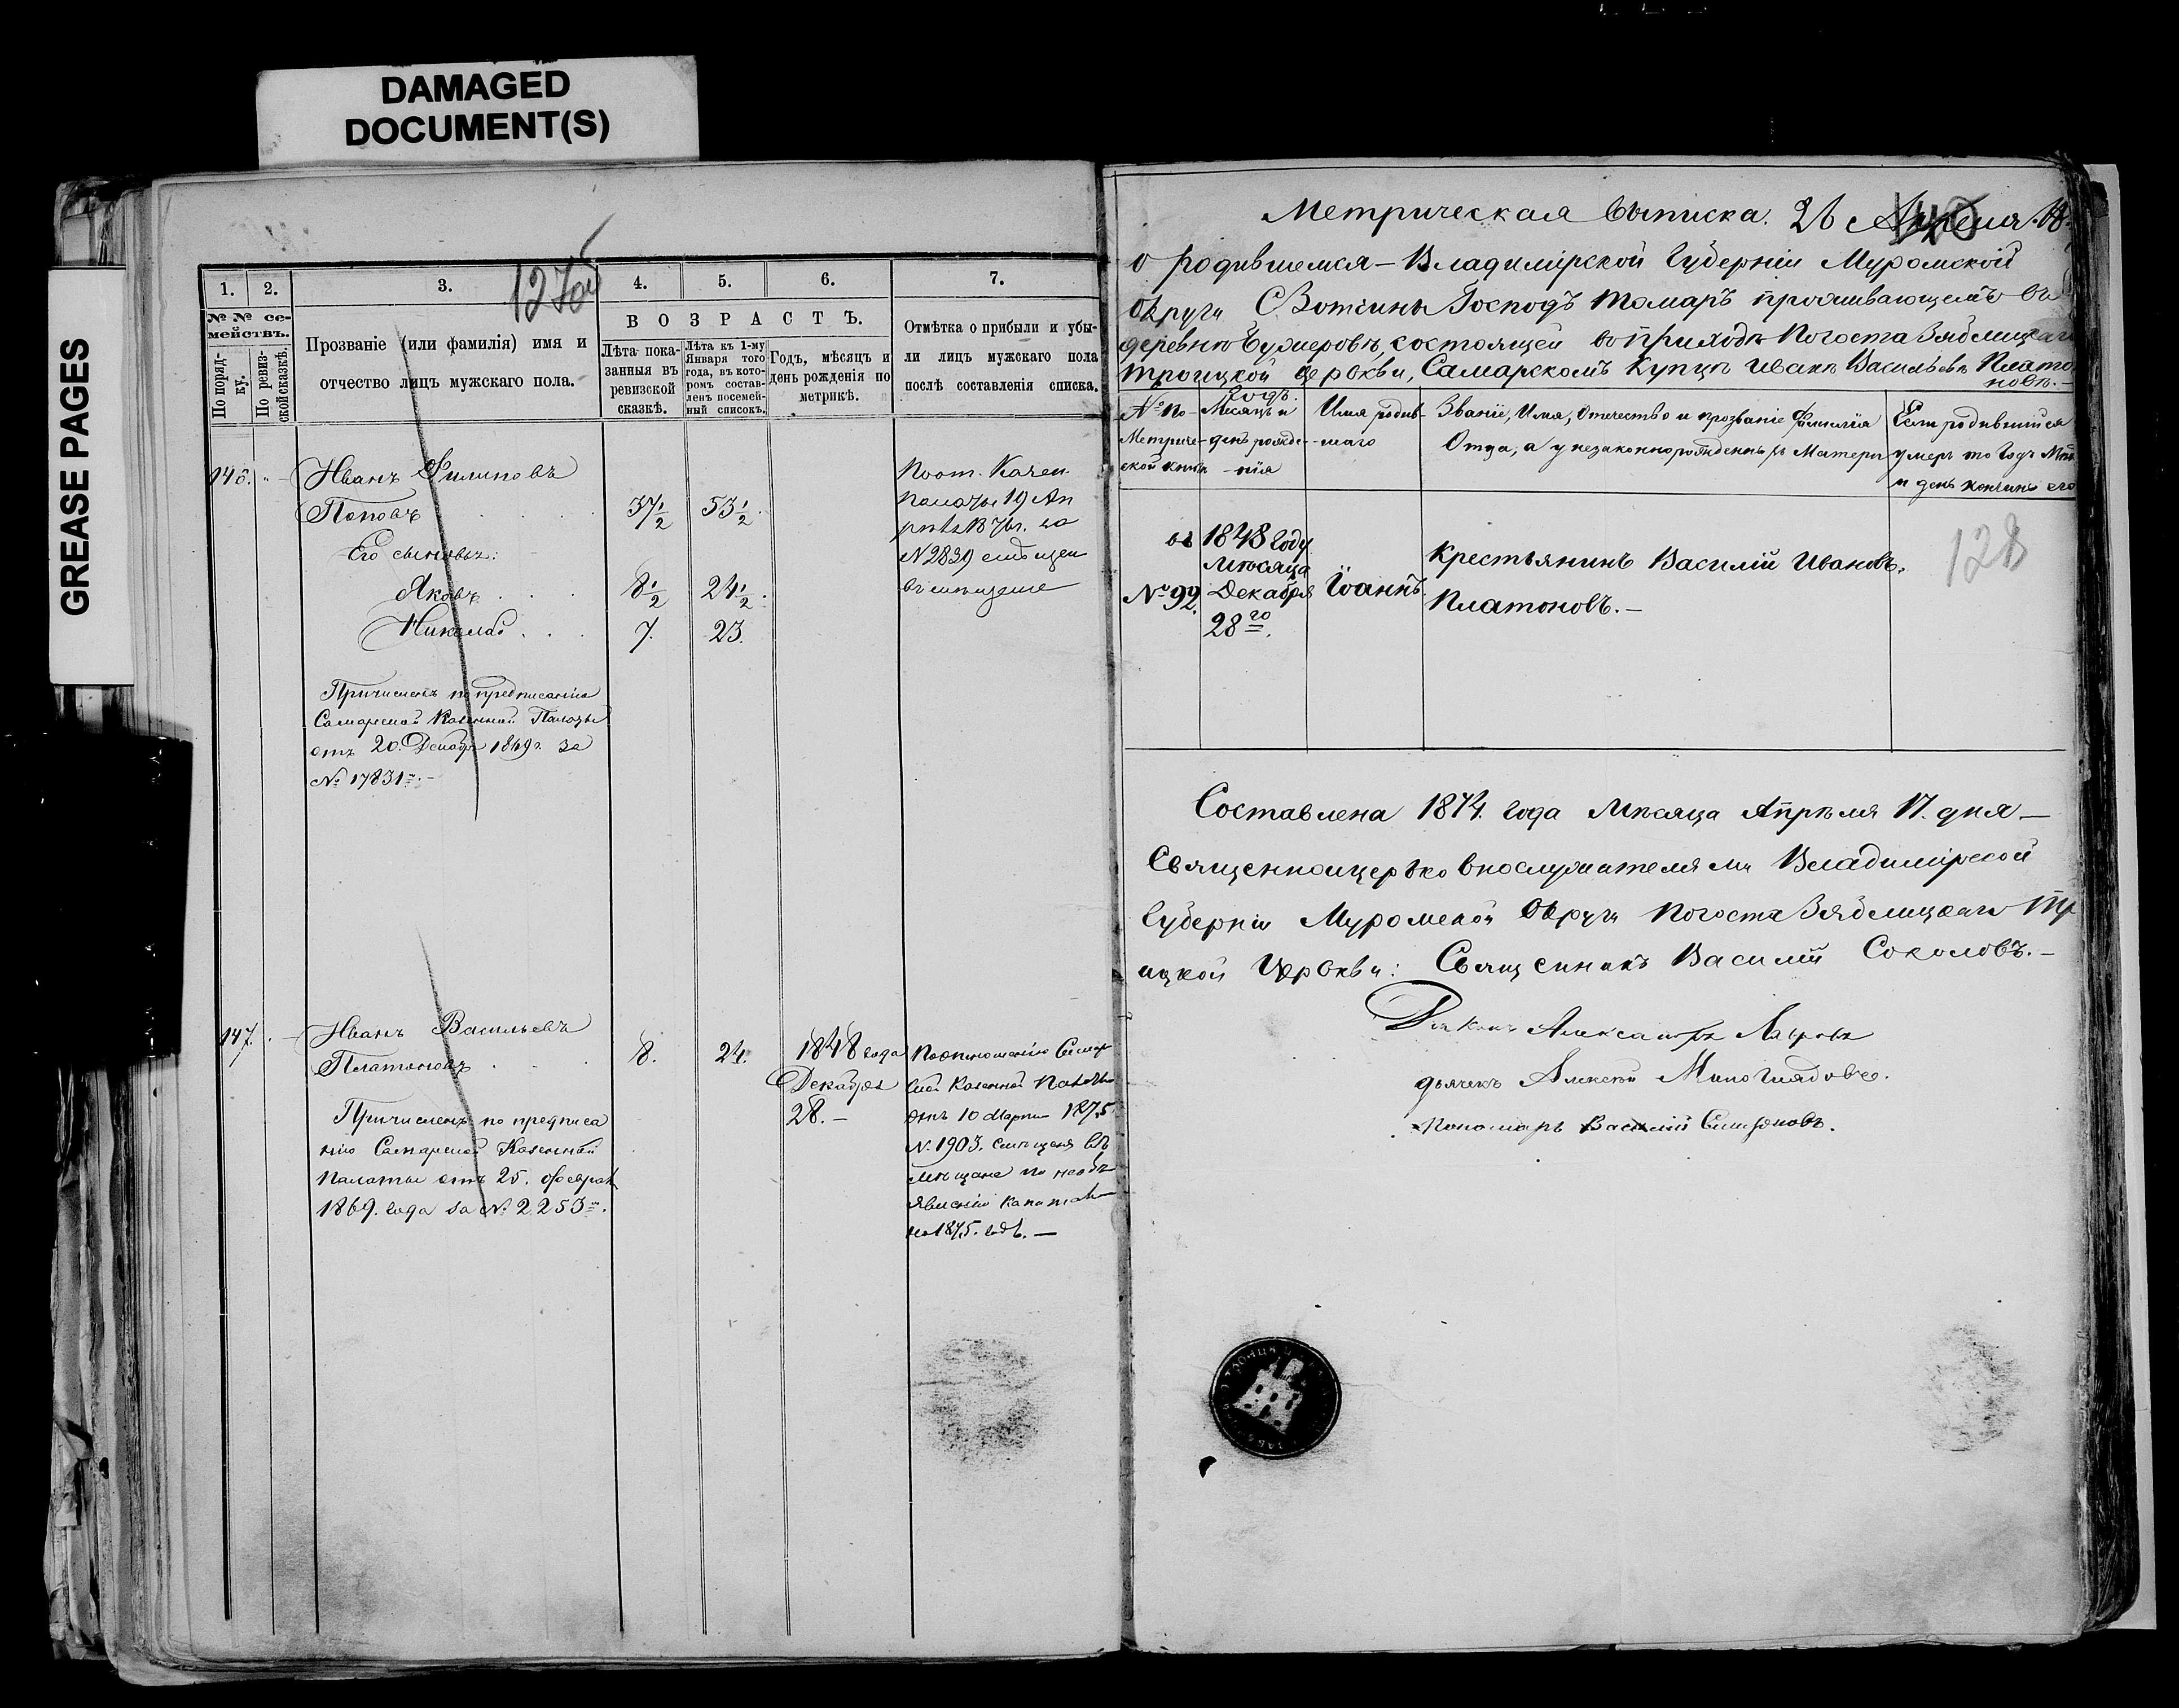 DAMAGED
DOCUMENT(S)
GREASE PAGES
127об
1. 2. 3. 4. 5. 6. 7.
№ № се-
мействъ.
По поряд-
ку.
По ревиз-
ской сказкѣ.
Прозваніе (или фамилія) имя и
отчество лицъ мужскаго пола.
ВОЗРАСТЪ.
Лѣта пока-
занныя въ
ревизской
сказкѣ.
Лѣта къ 1-му
Января того
года, въ кото-
ромъ состав-
ленъ посемей-
ный списокъ.
Годъ, мѣсяцъ и
день рожденія по
метрикѣ.
Отмѣтка о прибыли и убы-
ли лицъ мужскаго пола
послѣ составленія списка.
146. Иванъ Филиповъ
Поповъ 37 1/2 53 1/2
Его сыновья:
Яковъ 8 1/2 24 1/2
Николай 7. 23.
По от. Казен.
палаты 19 Ап
за
№ 2839
Причисленъ по предписанію
Самарской Казенной Палаты
отъ 20. Декабр 1869 г. за
№ 17831
147. Иванъ Васильевъ
Платоновъ 8. 24. 1848 года
Декабря
28. —
Причисленъ по предписа
нію Самарской Казенной
Палаты отъ 25. февраля
1869. года за № 2253
По отношенію Самар
ской Казенной Палаты
отъ 10 Марта 1875
№ 1903. въ
мѣщане по необъ
явленію капитала
на 1875. годъ. —
Метрическая выписка. 26 Апреля
о родившемся – Владимірской Губерніи Муромской
Округи С Вотчины Господъ Томаръ проживающемъ въ
состоящей въ приходѣ Погоста Зяблицкаго
Троицкой Церкви, Самарскомъ Купцѣ Иванѣ Васильевѣ Плато
новѣ. –
№ по
Метриче-
ской книгѣ
Годъ.
Месяцъ и
день рожде-
нія
Имя родив-
шаго
Званіе, Имя, Отечество и прозваніе Фамилія
Отца, а у незаконнорожденныхъ Матери
Если родившийся
умеръ то Годъ
и день кончины его
128
№ 92.
въ 1848 году
Мѣсяца
Декабря
28го.
Іоаннъ
Крестьянинъ Василій Ивановъ.
Платоновъ. –
Составлена 1874. года Мѣсяца Апрѣля 17. дня –
Священноцерковнослужителями Владимірской
Губерніи Муромской Округи Погоста Зяблицкаго Тр
ицкой Церкви: Священникъ Василій Соколовъ. –
Діаконъ Александръ Лавровъ
дьячекъ Алексѣй
Пономарь Василій